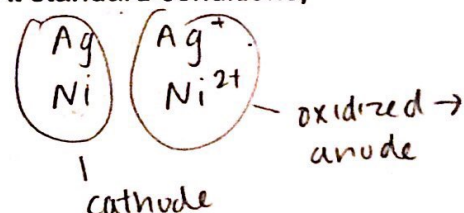 Ag Ag⁺
Ni Ni²⁺
oxidized →
anode
cathode